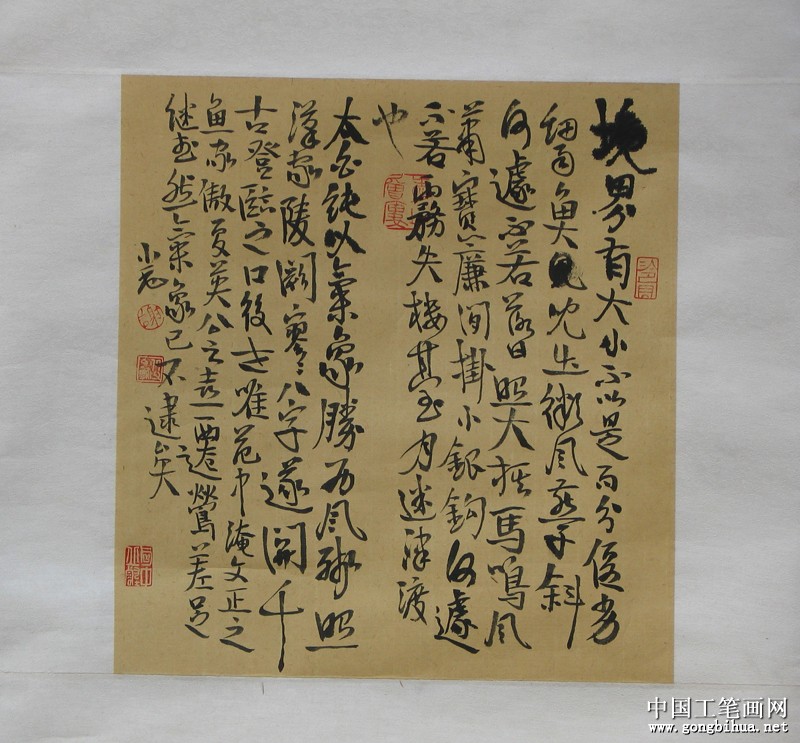 境界有大小不以是而分優劣
細雨魚兒出微風燕子斜
何遽不若落日照大旗馬鳴風
蕭寶簾間掛小銀鈎何遽
不若霧失樓臺月迷津渡
也
太白純以氣象勝西風殘照
漢家陵闕寥寥八字遂關千
古登臨之口後世唯范中淹文正之
魚家傲夏英公之喜遷鶯差足
繼武然氣象已不逮矣
中国工笔画网
www.gongbihua.net